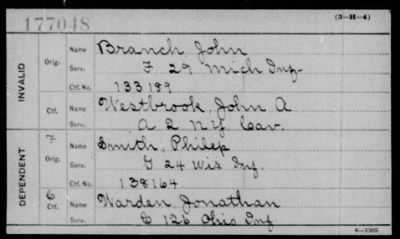 177048
(3-H-4)
INVALID
Orig.
Name Branch John
Serv. F 29 Mich Inf.
Ctf. No. 133189
Ctf.
Name Westbrook, John A
Serv. A 2 N Y Cav.
DEPENDENT
7
Orig.
Name Smith, Philep
Serv. G 24 Wis Inf.
Ctf. No. 138164
6
Ctf.
Name Warden Jonathan
Serv. C 126 Ohio Inf